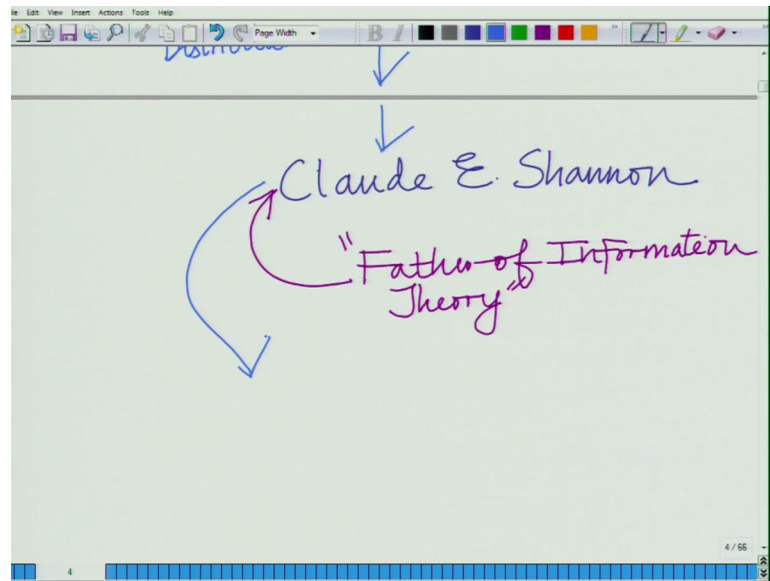 Edit View Insert Actions Tools Help
Page Width B I
Claude E. Shannon
"Father of Information
Theory"
4/66
4